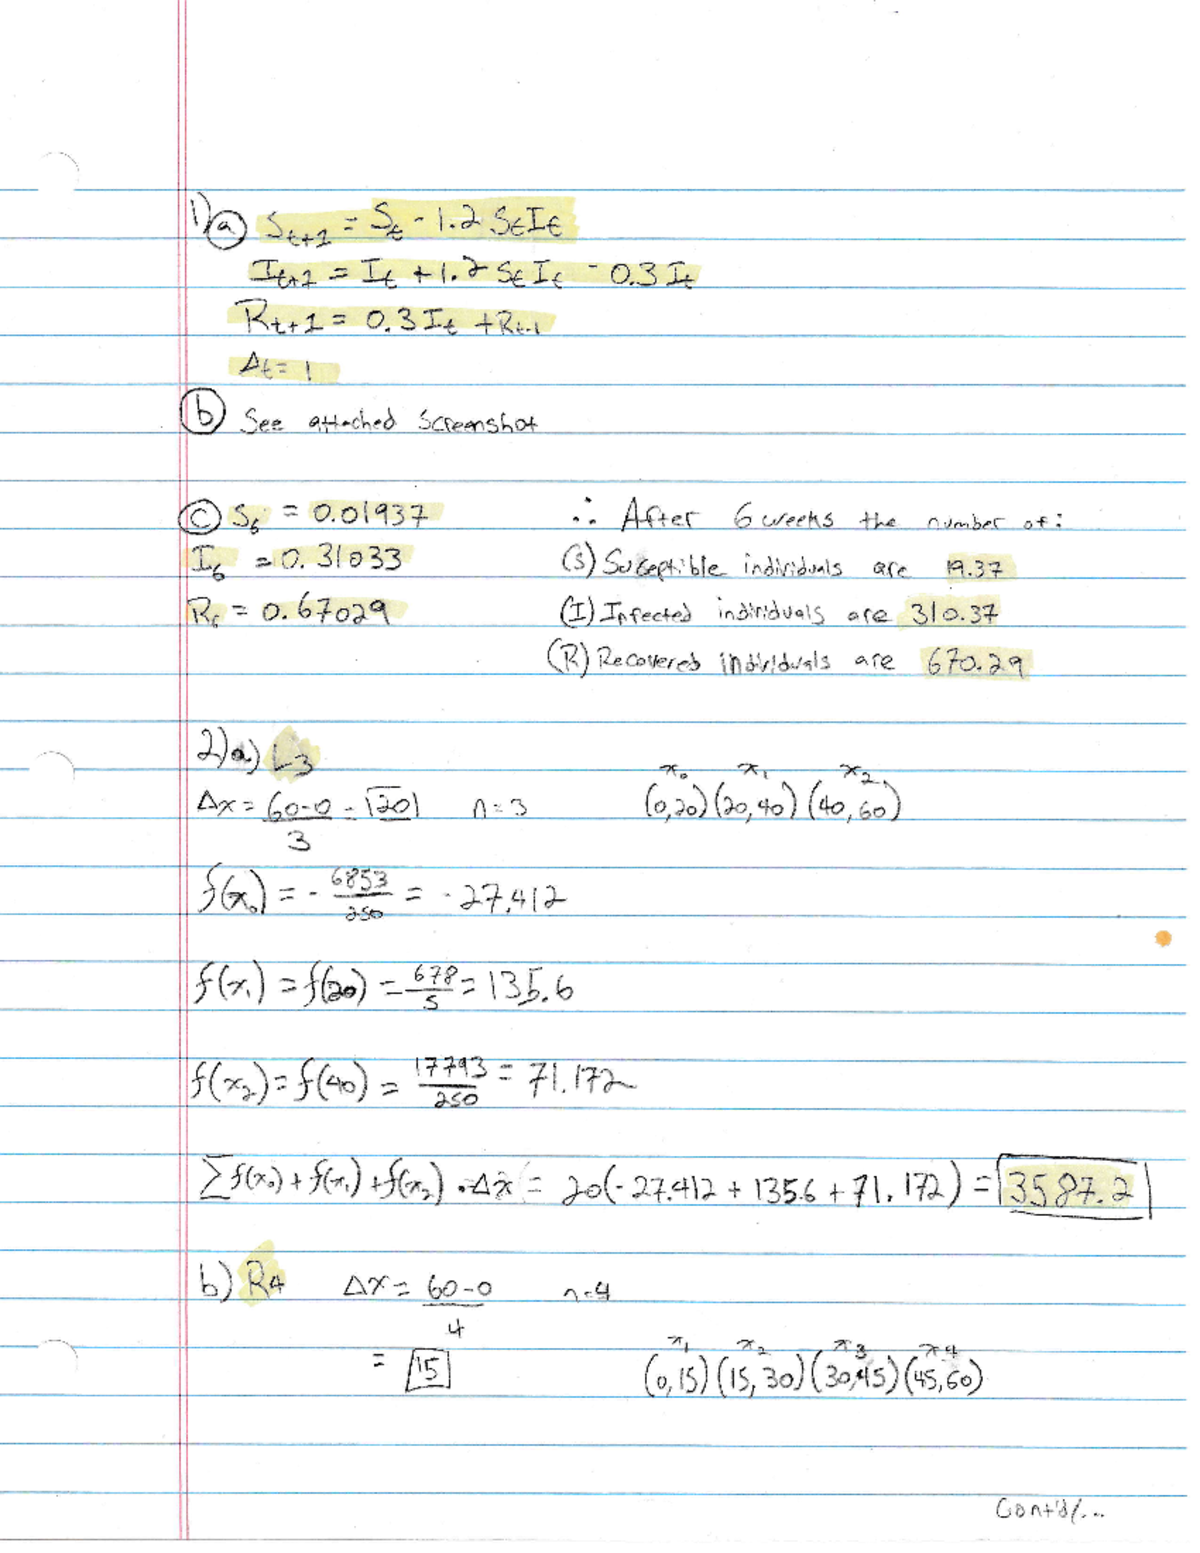 1) a) S_{t+1} = S_t - 1.2 S_t I_t
I_{t+1} = I_t + 1.2 S_t I_t - 0.3 I_t
R_{t+1} = 0.3 I_t + R_{t-1}
Δt = 1
b) See attached Screenshot
c) S_6 = 0.01937 ∴ After 6 weeks the number of:
I_6 = 0.31033 (S) Suseptible individuals are 19.37
R_6 = 0.67029 (I) Infected individuals are 310.37
(R) Recovered individuals are 670.29
2) a) L3
Δx = 60-0/3 = 20 n = 3 x_0 (0,20) x_1 (20,40) x_2 (40,60)
f(x_0) = - 6853/250 = -27.412
f(x_1) = f(20) = 678/5 = 135.6
f(x_2) = f(40) = 17793/250 = 71.172
∑ f(x_0) + f(x_1) + f(x_2) · Δx = 20(-27.412 + 135.6 + 71.172) = 3587.2
b) R4 Δx = 60-0/4 n=4
= 15 x_1 (0,15) x_2 (15,30) x_3 (30,45) x_4 (45,60)
Cont'd/...